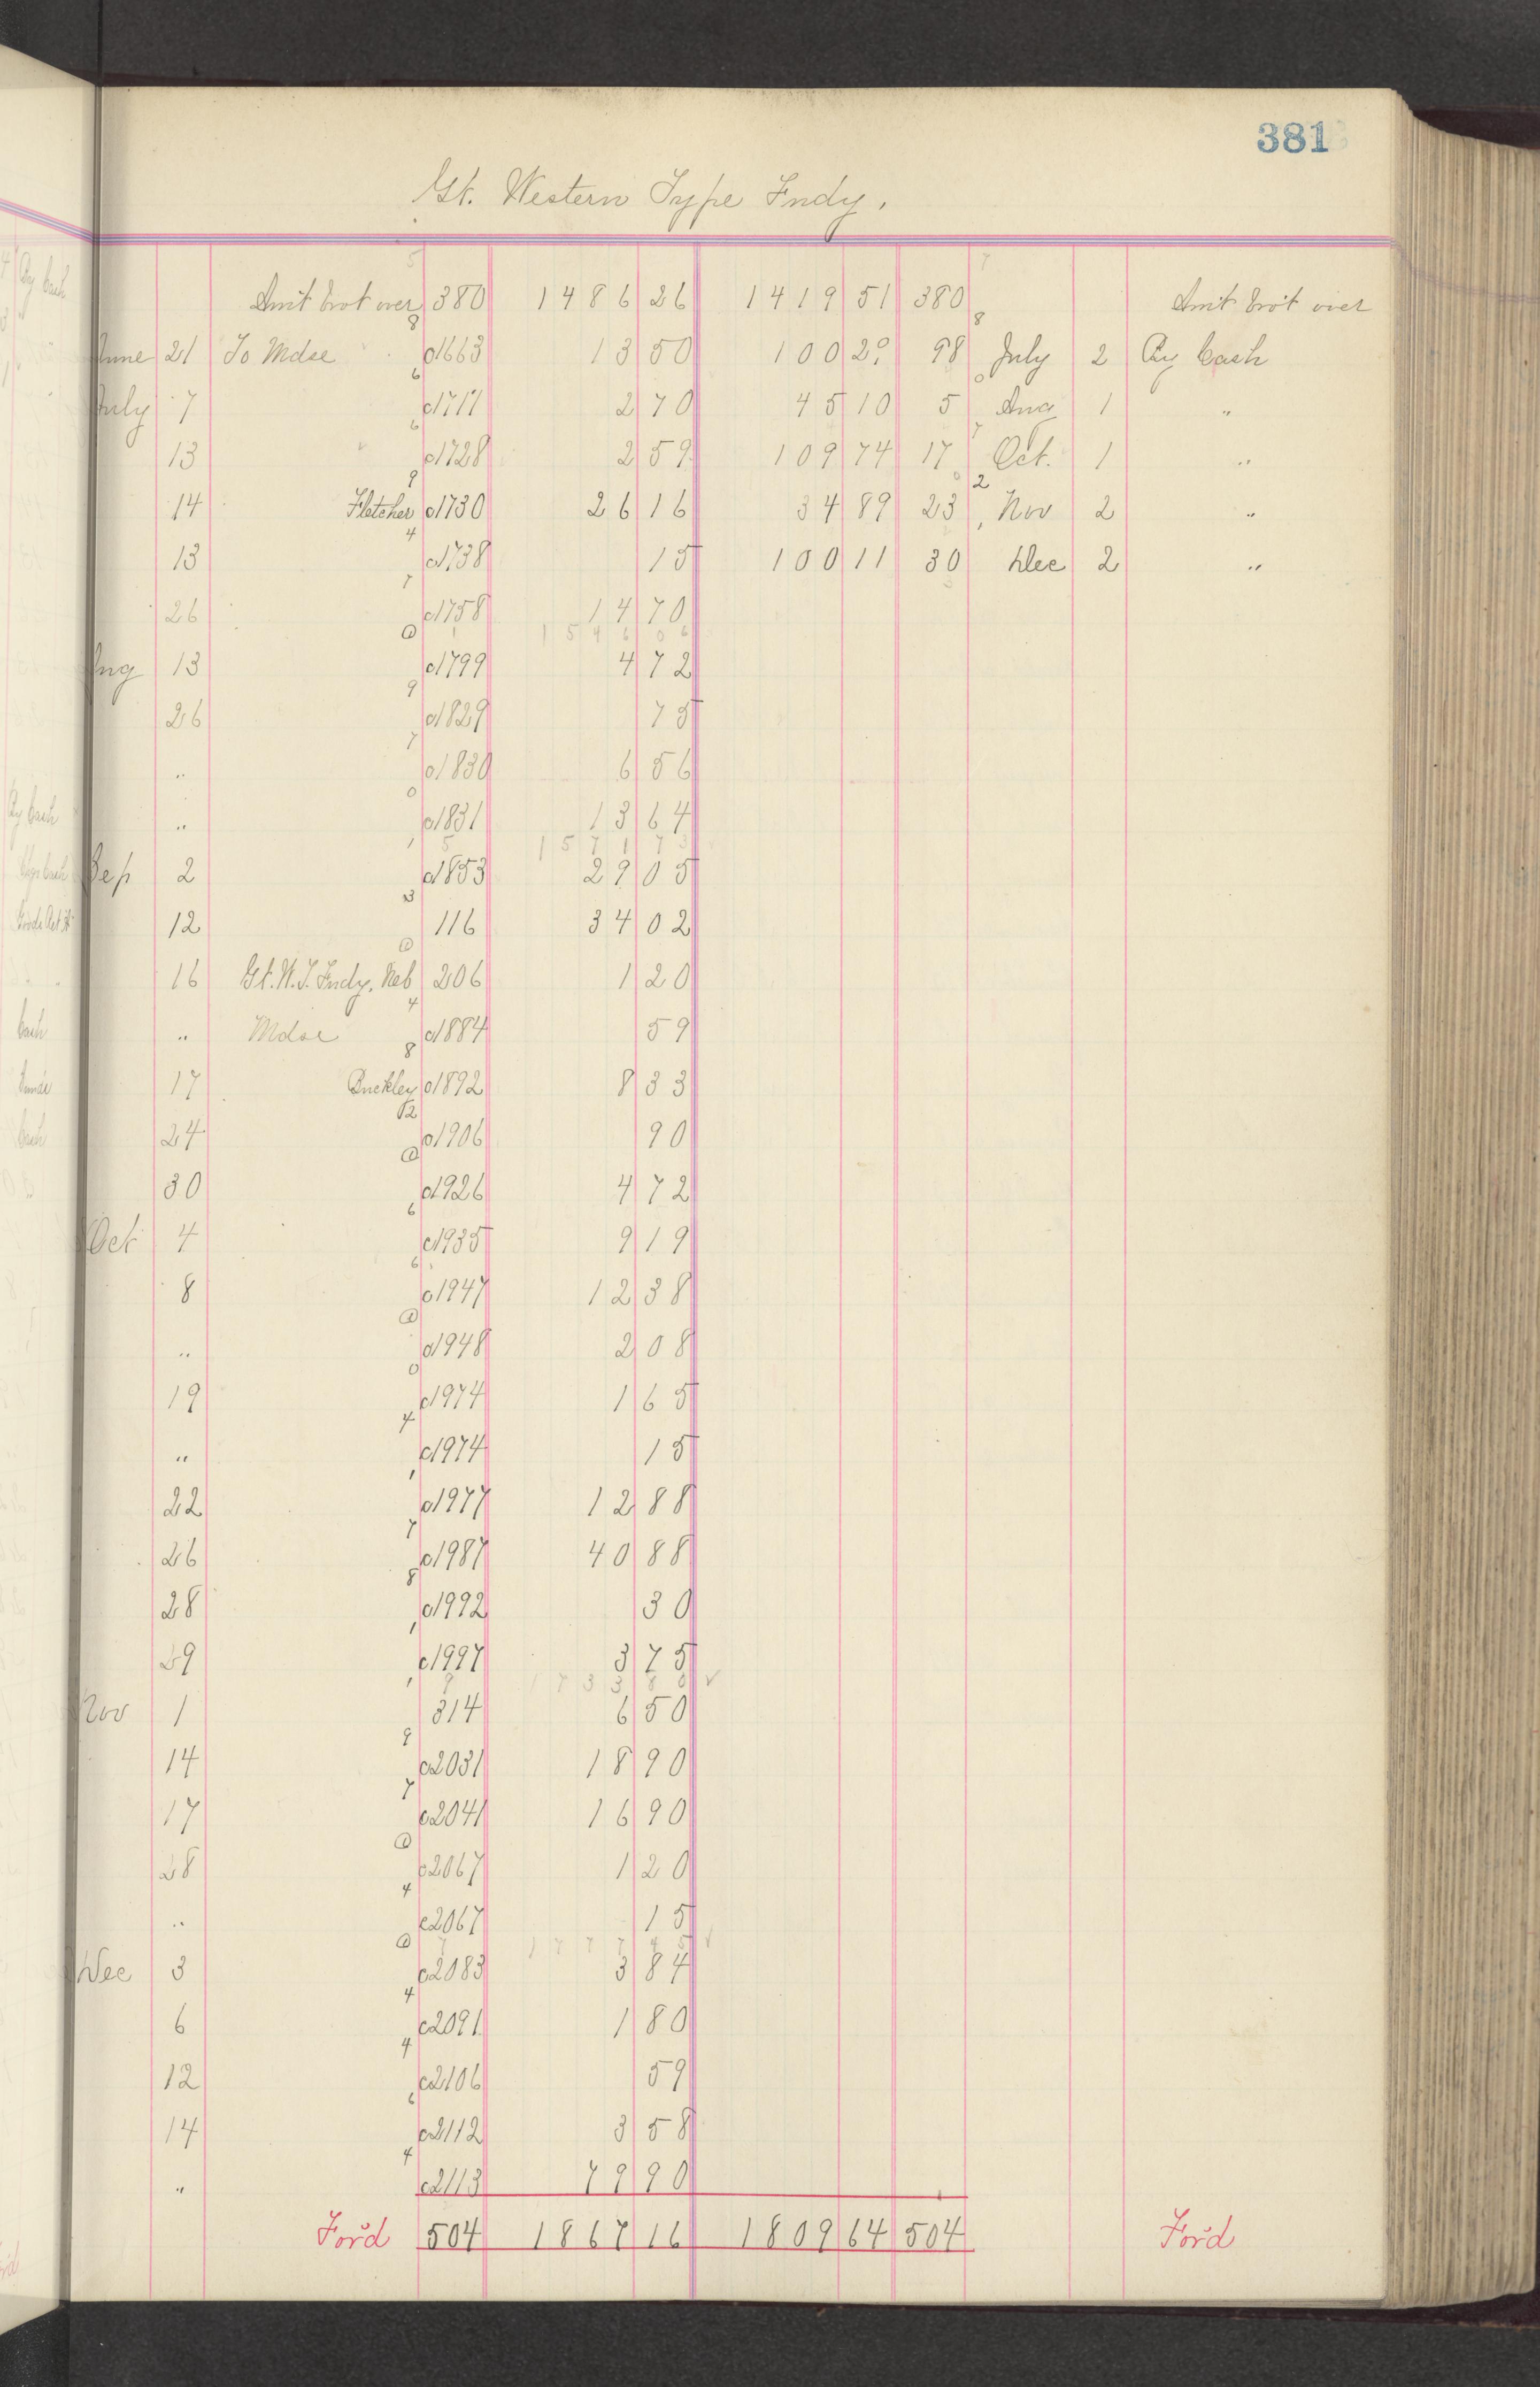 381
Gt. Western Type Fndy.
Amt brot over 380 1486 26 1419 51 380 Amt brot over
June 21 To Mdse c1663 13 50 100 29 98 July 2 By Cash
July 7 c1717 2 70 45 10 5 Aug 1 "
13 c1728 2 59 109 74 17 Oct. 1 "
14 Fletcher c1730 26 16 34 89 23 Nov 2 "
13 c1738 15 100 11 30 Dec 2 "
26 c1758 14 70
1546 06
Aug 13 c1799 4 72
26 c1829 75
" c1830 6 56
" c1831 13 64
1571 73
Sep 2 c1853 29 05
12 116 34 02
16 Gt. W. T. Fndy, Neb 206 1 20
" Mdse c1884 59
17 Buckley c1892 8 33
24 c1906 90
30 c1926 4 72
Oct 4 c1935 9 19
8 c1947 12 38
" c1948 2 08
19 c1974 1 65
" c1974 15
22 c1977 12 88
26 c1987 40 88
28 c1992 30
29 c1997 3 75
1733 80 ✓
Nov 1 314 6 50
14 c2031 18 90
17 c2041 16 90
28 c2067 1 20
" c2067 15
1777 45 ✓
Dec 3 c2083 3 84
6 c2091 1 80
12 c2106 59
14 c2112 3 58
" c2113 79 90
Ford 504 1867 16 1809 64 504 Ford